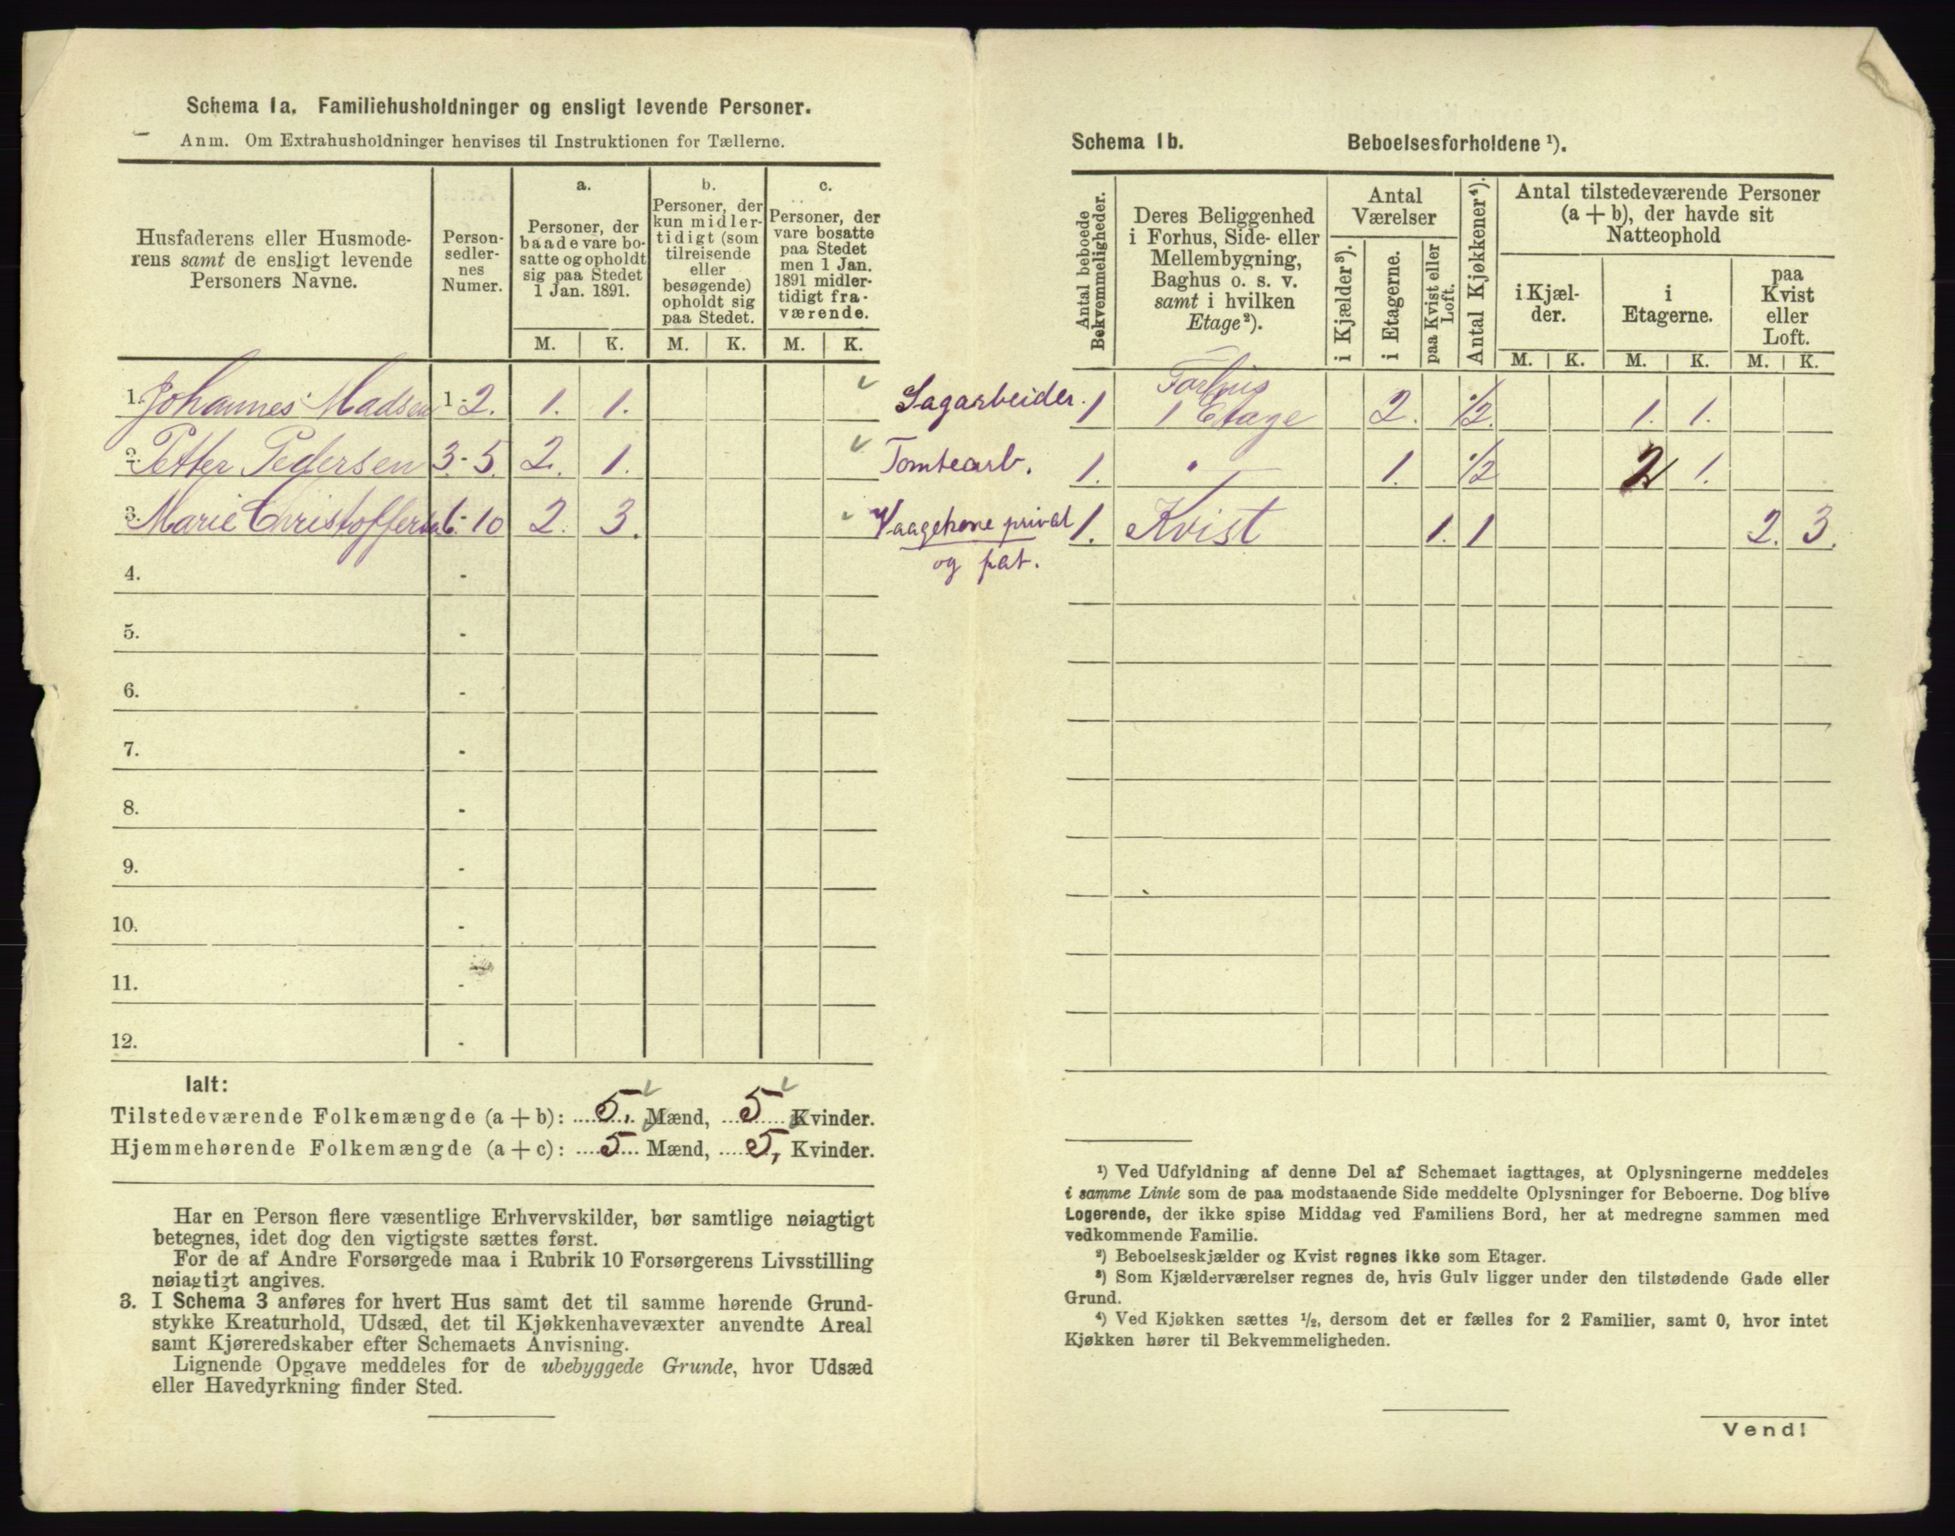 Schema 1a. Familiehusholdninger og ensligt levende Personer.
Anm. Om Extrahusholdninger henvises til Instruktionen for Tællerne.
Husfaderens eller Husmode-
rens samt de ensligt levende
Personers Navne.
Person-
sedler-
nes
Numer.
a.
Personer, der
baade vare bo-
satte og opholdt
sig paa Stedet
1 Jan. 1891.
b.
Personer, der
kun midler-
tidigt (som
tilreisende
eller
besøgende)
opholdt sig
paa Stedet.
c.
Personer, der
vare bosatte
paa Stedet
men 1 Jan.
1891 midler-
tidigt fra-
værende.
M. K. M. K. M. K.
1. Johannes Madsen 1-2. 1. 1. Sagarbeider.
2. Petter Pedersen 3-5. 2. 1. Tomtearb.
3. Marie Christoffersen 6-10 2. 3. Vaagekone privat
og fat.
4. -
5. -
6. -
7. -
8. -
9. -
10. -
11. -
12. -
Ialt:
Tilstedeværende Folkemængde (a + b): 5. Mænd, 5 Kvinder.
Hjemmehørende Folkemængde (a + c): 5 Mænd, 5, Kvinder.
Har en Person flere væsentlige Erhvervskilder, bør samtlige nøiagtigt
betegnes, idet dog den vigtigste sættes først.
For de af Andre Forsørgede maa i Rubrik 10 Forsørgerens Livsstilling
nøiagtigt angives.
3. I Schema 3 anføres for hvert Hus samt det til samme hørende Grund-
stykke Kreaturhold, Udsæd, det til Kjøkkenhavevæxter anvendte Areal
samt Kjøreredskaber efter Schemaets Anvisning.
Lignende Opgave meddeles for de ubebyggede Grunde, hvor Udsæd
eller Havedyrkning finder Sted.
Schema 1b. Beboelsesforholdene ¹).
Antal beboede
Bekvemmeligheder.
Deres Beliggenhed
i Forhus, Side- eller
Mellembygning,
Baghus o. s. v.
samt i hvilken
Etage²).
Antal
Værelser
i Kjælder³).
i Etagerne.
paa Kvist eller
Loft.
Antal Kjøkkener⁴).
Antal tilstedeværende Personer
(a + b), der havde sit
Natteophold
i Kjæl-
der.
i
Etagerne.
paa
Kvist
eller
Loft.
M. K. M. K. M. K.
1 Forhus
1 Etage 2. 1/2. 1. 1.
1. " 1. 1/2 2 1.
1. Kvist 1. 1 2. 3.
¹) Ved Udfyldning af denne Del af Schemaet iagttages, at Oplysningerne meddeles
i samme Linie som de paa modstaaende Side meddelte Oplysninger for Beboerne. Dog blive
Logerende, der ikke spise Middag ved Familiens Bord, her at medregne sammen med
vedkommende Familie.
²) Beboelseskjælder og Kvist regnes ikke som Etager.
³) Som Kjælderværelser regnes de, hvis Gulv ligger under den tilstødende Gade eller
Grund.
⁴) Ved Kjøkken sættes ½, dersom det er fælles for 2 Familier, samt 0, hvor intet
Kjøkken hører til Bekvemmeligheden.
Vend!